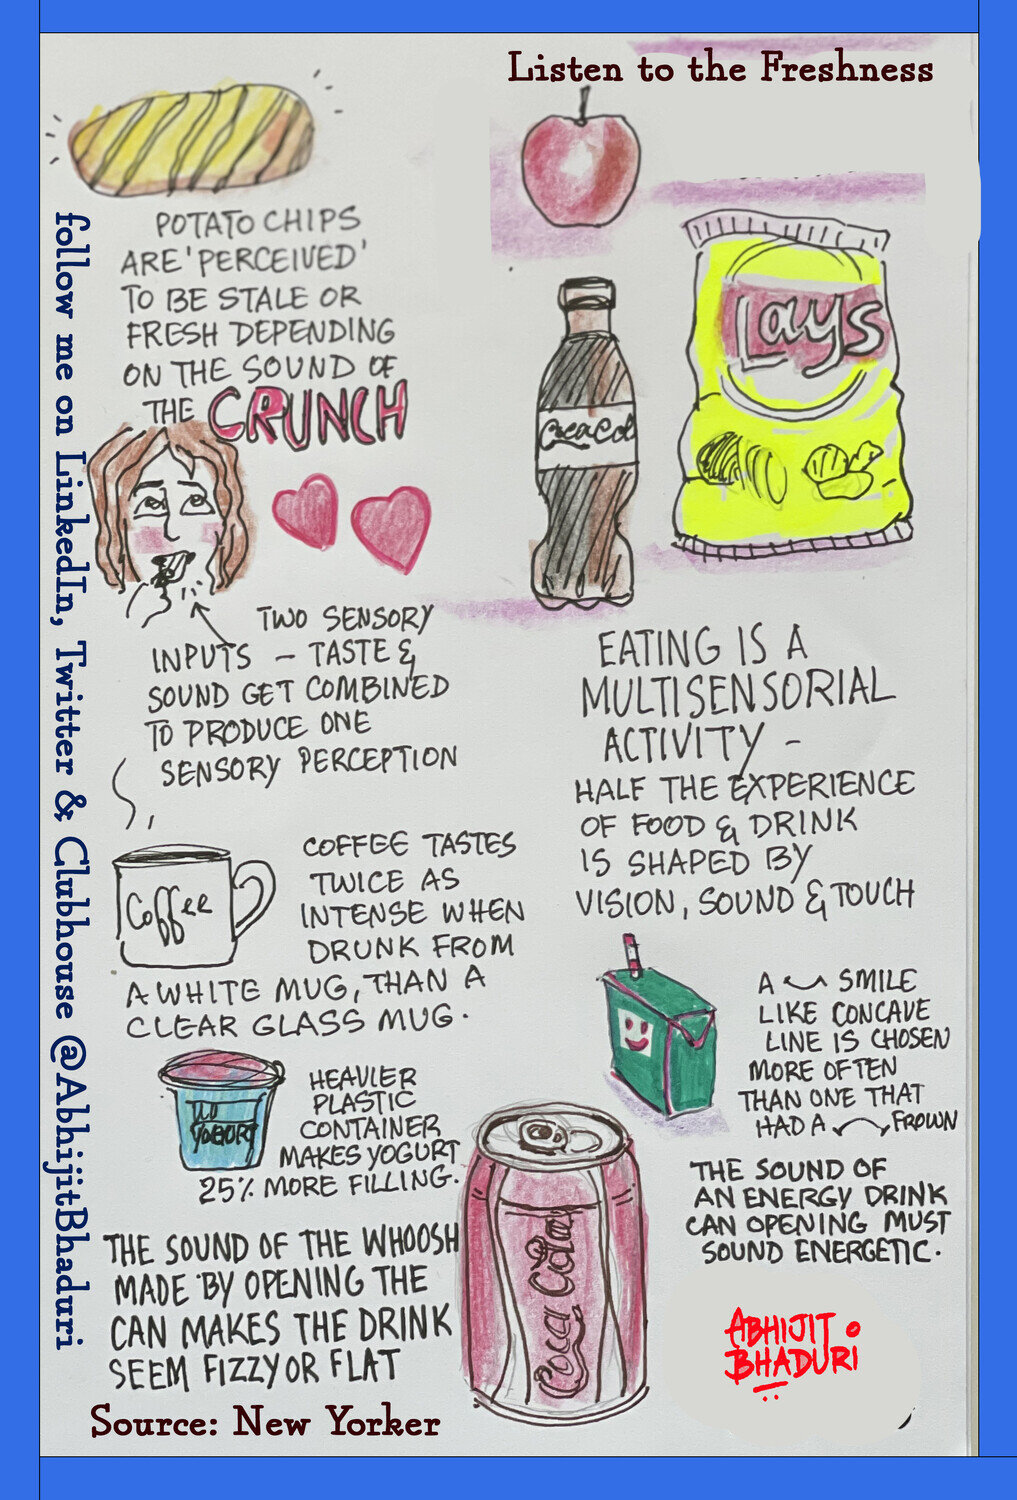 Listen to the Freshness
POTATO CHIPS
ARE 'PERCEIVED'
TO BE STALE OR
FRESH DEPENDING
ON THE SOUND OF
THE CRUNCH
Lays
Coca Col
TWO SENSORY
INPUTS – TASTE &
SOUND GET COMBINED
TO PRODUCE ONE
SENSORY PERCEPTION
EATING IS A
MULTISENSORIAL
ACTIVITY –
HALF THE EXPERIENCE
OF FOOD & DRINK
IS SHAPED BY
VISION, SOUND & TOUCH
Coffee
COFFEE TASTES
TWICE AS
INTENSE WHEN
DRUNK FROM
A WHITE MUG, THAN A
CLEAR GLASS MUG.
A SMILE
LIKE CONCAVE
LINE IS CHOSEN
MORE OFTEN
THAN ONE THAT
HAD A FROWN
YOGURT
HEAVIER
PLASTIC
CONTAINER
MAKES YOGURT
25% MORE FILLING.
THE SOUND OF
AN ENERGY DRINK
CAN OPENING MUST
SOUND ENERGETIC.
THE SOUND OF THE WHOOSH
MADE BY OPENING THE
CAN MAKES THE DRINK
SEEM FIZZY OR FLAT
Coca Cola
ABHIJIT
BHADURI
Source: New Yorker
follow me on LinkedIn, Twitter & Clubhouse @AbhijitBhaduri